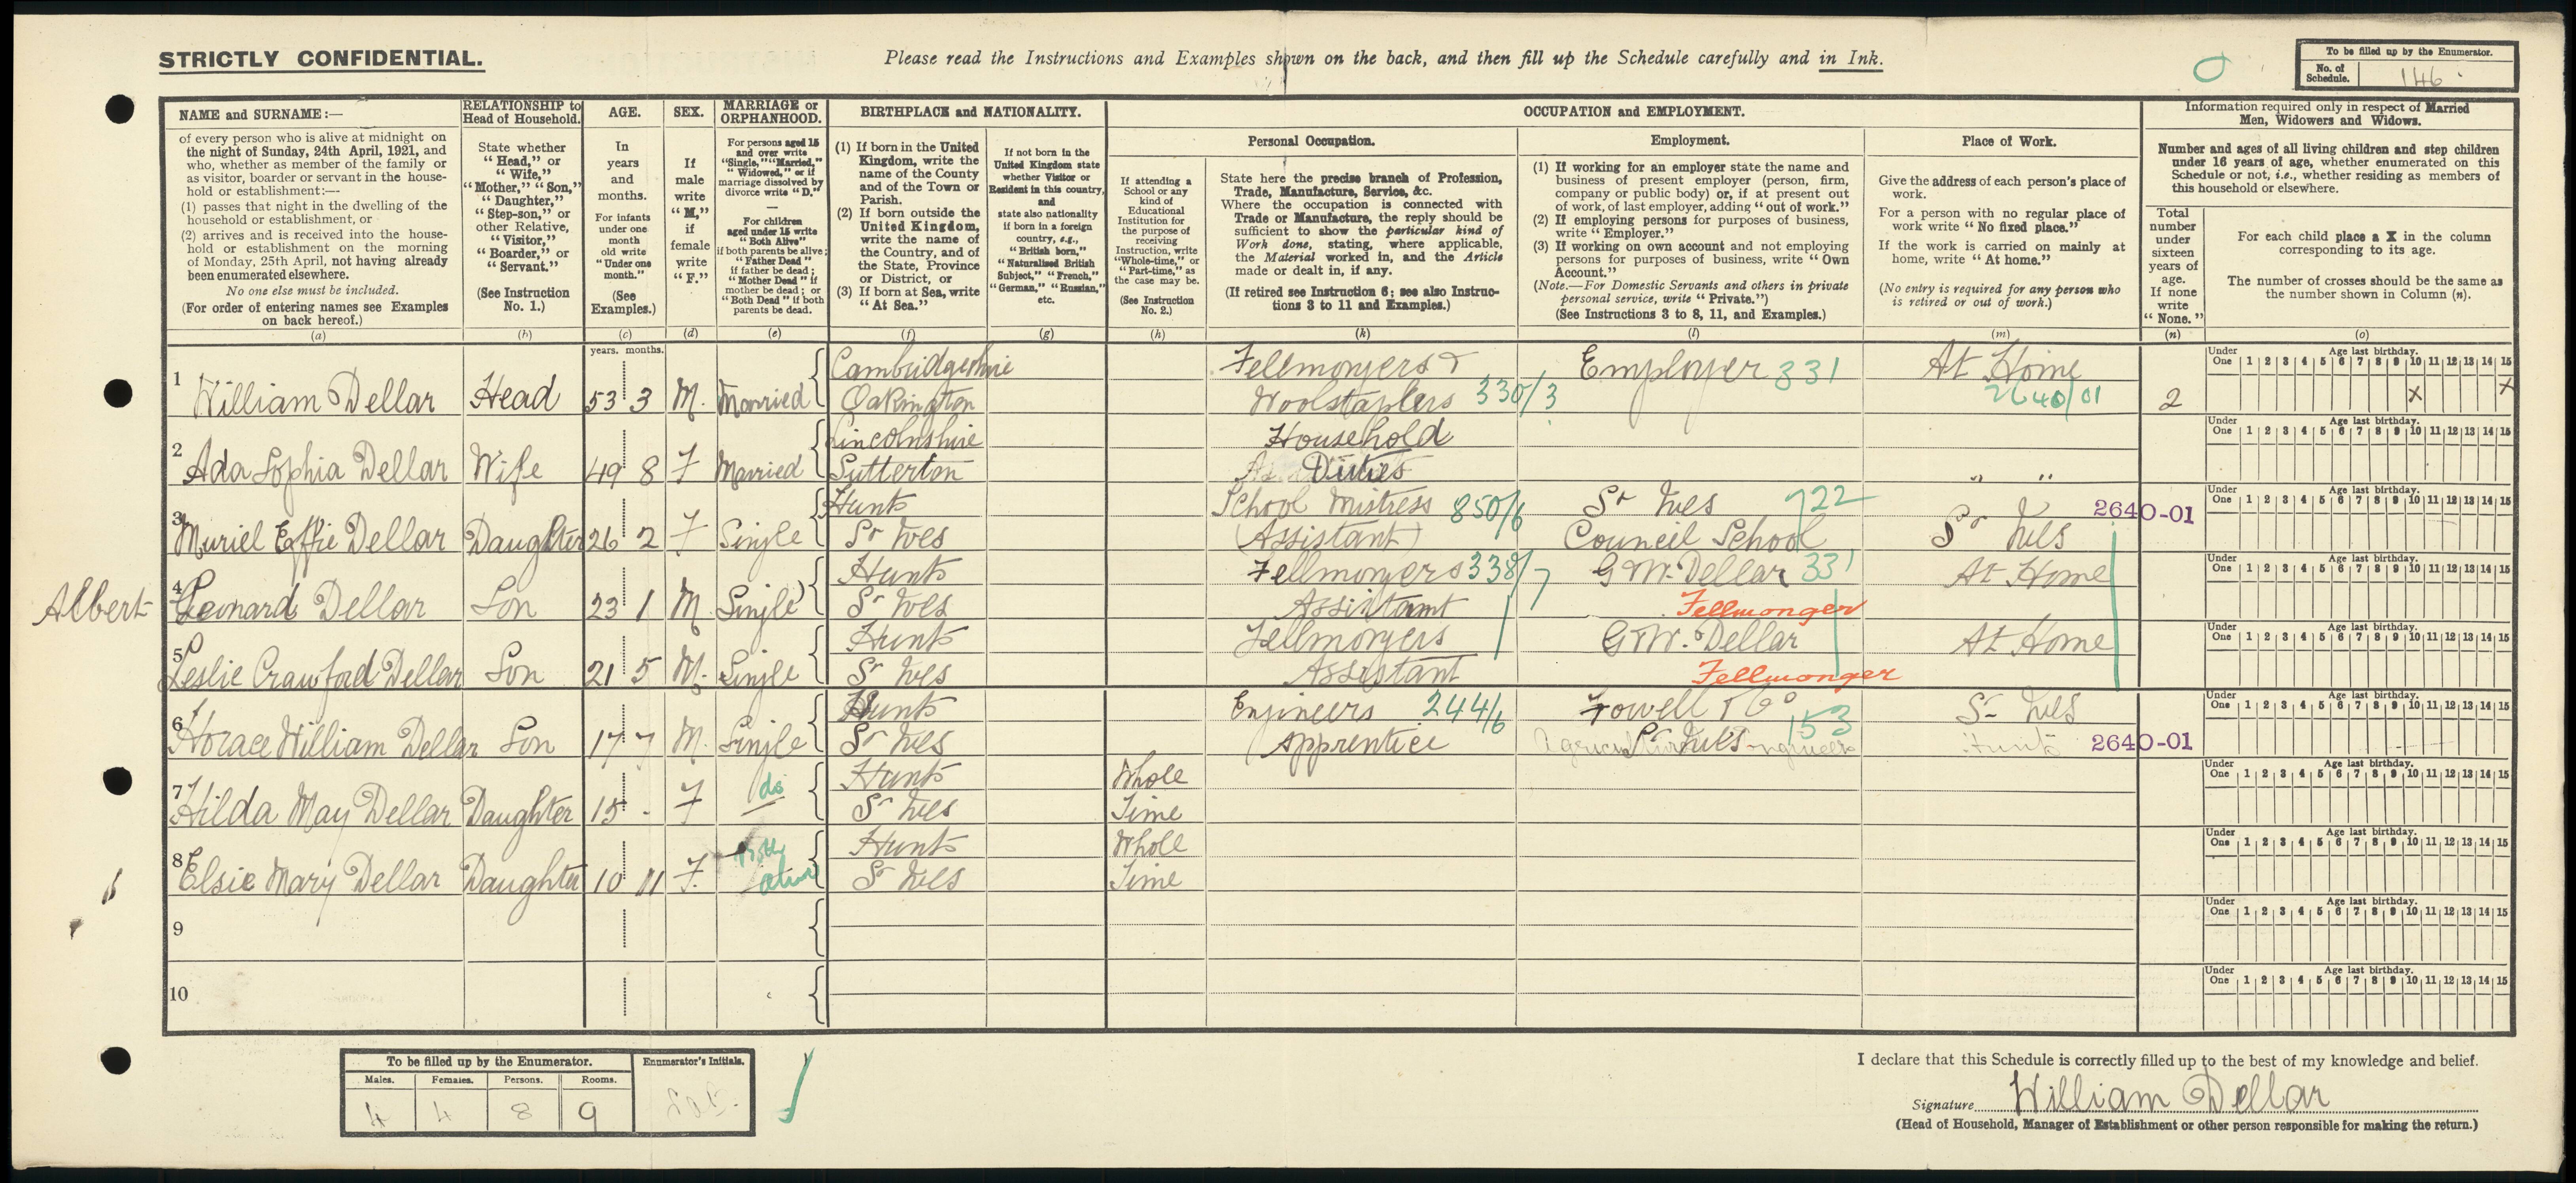 STRICTLY CONFIDENTIAL.
Please read the Instructions and Examples shown on the back, and then fill up the Schedule carefully and in Ink.
To be filled up by the Enumerator.
No. of Schedule. 146
NAME and SURNAME:—
of every person who is alive at midnight on
the night of Sunday, 24th April, 1921, and
who, whether as member of the family or
as visitor, boarder or servant in the house-
hold or establishment:—
(1) passes that night in the dwelling of the
household or establishment, or
(2) arrives and is received into the house-
hold or establishment on the morning
of Monday, 25th April, not having already
been enumerated elsewhere.
No one else must be included.
(For order of entering names see Examples
on back hereof.)
(a)
RELATIONSHIP to
Head of Household.
State whether
"Head," or
"Wife,"
"Mother," "Son,"
"Daughter,"
"Step-son," or
other Relative,
"Visitor,"
"Boarder," or
"Servant."
(See Instruction
No. 1.)
(b)
AGE.
In
years
and
months.
For infants
under one
month
old write
"Under one
month."
(See
Examples.)
(c)
SEX.
If
male
write
"M,"
if
female
write
"F."
(d)
MARRIAGE or
ORPHANHOOD.
For persons aged 15
and over write
"Single," "Married,"
"Widowed," or if
marriage dissolved by
divorce write "D."
—
For children
aged under 15 write
"Both Alive"
if both parents be alive;
"Father Dead" if
if father be dead;
"Mother Dead" if
mother be dead; or
"Both Dead" if both
parents be dead.
(e)
BIRTHPLACE and NATIONALITY.
(1) If born in the United
Kingdom, write the
name of the County
and of the Town or
Parish.
(2) If born outside the
United Kingdom,
write the name of
the Country, and of
the State, Province
or District, or
(3) If born at Sea, write
"At Sea."
(f)
If not born in the
United Kingdom state
whether Visitor or
Resident in this country,
and
state also nationality
if born in a foreign
country, e.g.,
"British born,"
"Naturalised British
Subject," "French,"
"German," "Russian,"
etc.
(g)
OCCUPATION and EMPLOYMENT.
If attending a
School or any
kind of
Educational
Institution for
the purpose of
receiving
Instruction, write
"Whole-time," or
"Part-time," as
the case may be.
(See Instruction
No. 2.)
(h)
Personal Occupation.
State here the precise branch of Profession,
Trade, Manufacture, Service, &c.
Where the occupation is connected with
Trade or Manufacture, the reply should be
sufficient to show the particular kind of
Work done, stating, where applicable,
the Material worked in, and the Article
made or dealt in, if any.
(If retired see Instruction 6; see also Instruc-
tions 3 to 11 and Examples.)
(k)
Employment.
(1) If working for an employer state the name and
business of present employer (person, firm,
company or public body) or, if at present out
of work, of last employer, adding "out of work."
(2) If employing persons for purposes of business,
write "Employer."
(3) If working on own account and not employing
persons for purposes of business, write "Own
Account."
(Note.—For Domestic Servants and others in private
personal service, write "Private.")
(See Instructions 3 to 8, 11, and Examples.)
(l)
Place of Work.
Give the address of each person's place of
work.
For a person with no regular place of
work write "No fixed place."
If the work is carried on mainly at
home, write "At home."
(No entry is required for any person who
is retired or out of work.)
(m)
Information required only in respect of Married
Men, Widowers and Widows.
Number and ages of all living children and step children
under 16 years of age, whether enumerated on this
Schedule or not, i.e., whether residing as members of
this household or elsewhere.
Total
number
under
sixteen
years of
age.
If none
write
"None."
(n)
For each child place a X in the column
corresponding to its age.
The number of crosses should be the same as
the number shown in Column (n).
(o)
years. months.
Under One Age last birthday. 1 2 3 4 5 6 7 8 9 10 11 12 13 14 15
1 William Dellar Head 53 3 M. Married Cambridgeshire Oakington Fellmongers & Woolstaplers 330/3 Employer 331 At Home 2640/01 2 X X
Under One Age last birthday. 1 2 3 4 5 6 7 8 9 10 11 12 13 14 15
2 Ada Sophia Dellar Wife 49 8 F Married Lincolnshire Sutterton Household Duties " "
Under One Age last birthday. 1 2 3 4 5 6 7 8 9 10 11 12 13 14 15
3 Muriel Effie Dellar Daughter 26 2 F Single Hunts St Ives School Mistress 850/6 (Assistant) St Ives 722 Council School St Ives 2640-01
Under One Age last birthday. 1 2 3 4 5 6 7 8 9 10 11 12 13 14 15
Albert 4 Leonard Dellar Son 23 1 M Single Hunts St Ives Fellmongers 338/7 Assistant G W. Dellar 331 Fellmonger At Home
Under One Age last birthday. 1 2 3 4 5 6 7 8 9 10 11 12 13 14 15
5 Leslie Crawford Dellar Son 21 5 M. Single Hunts St Ives Fellmongers Assistant G W. Dellar Fellmonger At Home
Under One Age last birthday. 1 2 3 4 5 6 7 8 9 10 11 12 13 14 15
6 Horace William Dellar Son 17 7 M. Single Hunts St Ives Engineers 244/6 Apprentice Fowell & Co 153 St Ives St Ives Hunts 2640-01
Under One Age last birthday. 1 2 3 4 5 6 7 8 9 10 11 12 13 14 15
7 Hilda May Dellar Daughter 15 - F do Hunts St Ives Whole Time
Under One Age last birthday. 1 2 3 4 5 6 7 8 9 10 11 12 13 14 15
8 Elsie Mary Dellar Daughter 10 11 F. Both alive Hunts St Ives Whole Time
Under One Age last birthday. 1 2 3 4 5 6 7 8 9 10 11 12 13 14 15
9
Under One Age last birthday. 1 2 3 4 5 6 7 8 9 10 11 12 13 14 15
10
To be filled up by the Enumerator.
Males. Females. Persons. Rooms.
4 4 8 9
Enumerator's Initials.
I declare that this Schedule is correctly filled up to the best of my knowledge and belief.
Signature William Dellar
(Head of Household, Manager of Establishment or other person responsible for making the return.)